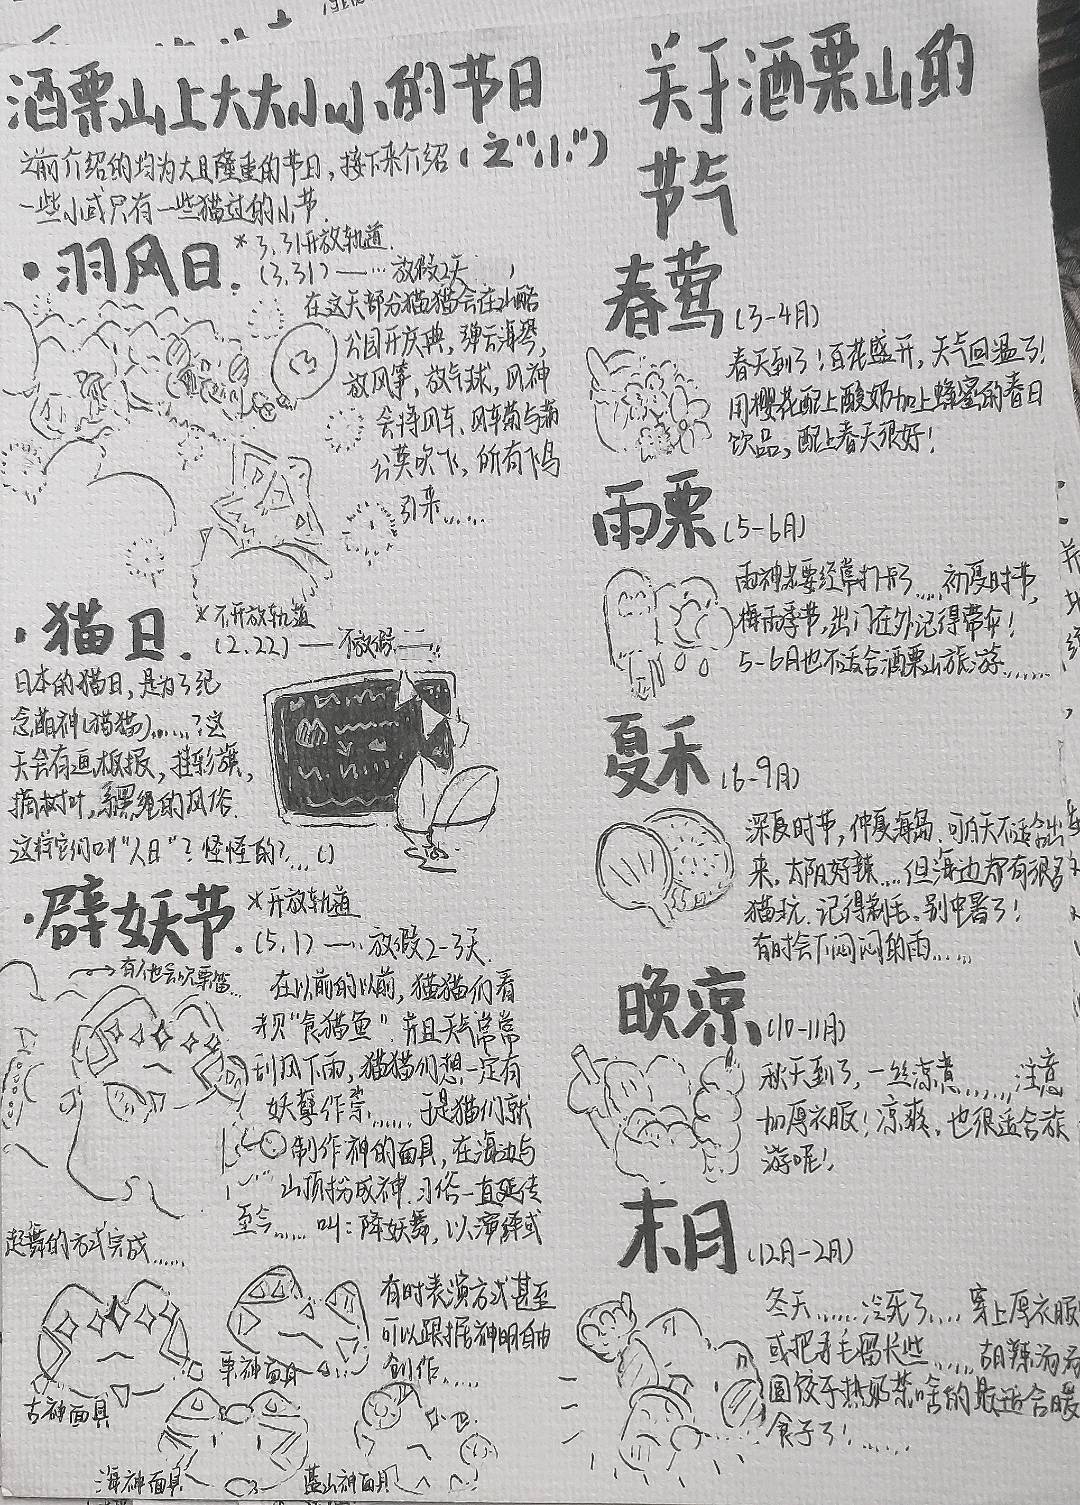 酒栗山上大大小小的节日
(之“小”)
之前介绍的均为大且隆重的节日，接下来介绍
一些小或只有一些猫过的小节.
·羽风日.
*3.31开放轨道.
(3.31)—…放假2天
在这天部分猫猫会在山略
公园开庆典，弹云海琴，
放风筝，放气球，风神
会将风车、风车菊与蒲
公英吹飞，所有飞鸟
引来……
·猫日.
*不开放轨道
(2.22)—不放假
日本的猫日，是为了纪
念萌神(猫猫)……?这
天会有画板报，挂彩旗，
摘树叶，系黑绳的风俗.
这样它们叫“人日”?怪怪的?…()
·辟妖节.
*开放轨道
(5.1)—…放假2-3天.
有他会沉栗笛…
在以前的以前，猫猫们看
到“食猫鱼”并且天气常常
刮风下雨，猫猫们想一定有
妖孽作祟……于是猫们就
制作神的面具，在海边与
山顶扮成神.习俗一直延传
至今……叫：降妖舞，以演绎或
起舞的方式完成……
有时表演方式甚至
可以跟据神明自由
创作……
古神面具
栗神面具
海神面具
蓝山神面具
关于酒栗山的
节气
春莺(3-4月)
春天到了!百花盛开，天气回温了!
用樱花配上酸奶加上蜂蜜的春日
饮品，配上春天很好!
雨栗(5-6月)
雨神老要经常打卡了……初夏时节，
梅雨季节，出门在外记得带伞!
5-6月也不适合酒栗山旅游……
夏禾(6-9月)
深夏时节，仲夏海岛，可白天不适合出
来，太阳好辣…，但海边却有很多
猫玩.记得剃毛，别中暑了!
有时会下闷闷的雨……
晚凉(10-11月)
秋天到了，一丝凉意……，注意
加厚衣服!凉爽，也很适合旅
游呢!
末月(12月-2月)
冬天……冷死了…穿上厚衣服
或把手毛留长些……胡辣汤汤
圆饺子热奶茶啥的最适合暖
食了!……